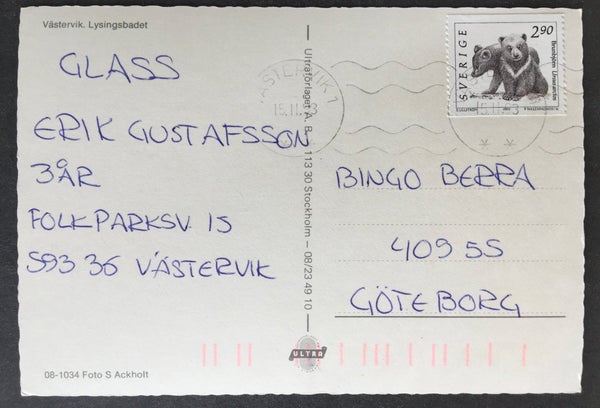 Västervik. Lysingsbadet
GLASS
ERIK GUSTAFSSON
3ÅR
FOLKPARKSV. 15
593 36 VÄSTERVIK
08-1034 Foto S Ackholt
Ultraförlaget A. B. 113 30 Stockholm – 08/23 49 10
ULTRA
VÄSTERVIK 1
15.11.
SVERIGE
2.90
Brunbjörn Ursus arctos
15.11.
BINGO BERRA
409 55
GÖTEBORG